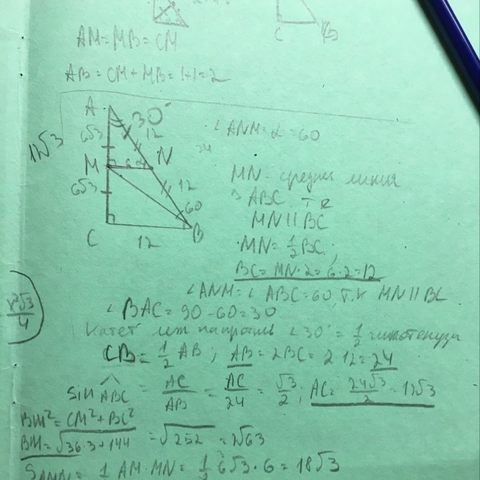 C B
AM=MB=CM
AB=CM+MB=1+1=2
A 30°
6√3 12
12√3
∠ANM=α=60
M 6 N
6√3 12
60
C 12 B
MN-средняя линия
ABC, т.к
MN||BC
MN=½BC
BC=MN·2=6·2=12
∠ANM=∠ABC=60, т.к MN||BC
∠BAC=90-60=30
Катет леж напротив ∠30°=½гипотенузы
CB=½AB; AB=2BC=2·12=24
sin ABC = AC/AB = AC/24 = √3/2; AC=24√3/2=12√3
√3/4
BM²=CM²+BC²
BM=√36·3+144=√252=2√63
AM·MN=½6√3·6=18√3